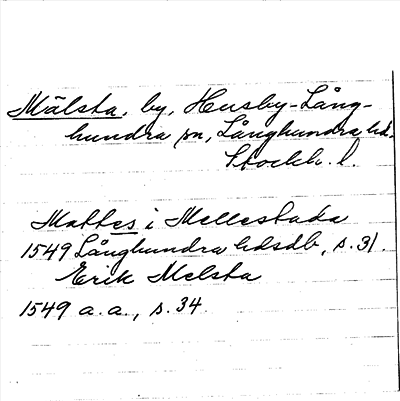 Mälsta, by, Husby-Lång-
hundra sn, Långhundra hd.
Stockh. l.
Mattes i Mellestada
1549 Långhundra hdsdb, s. 31.
Erik Melsta
1549 a. a., s. 34.